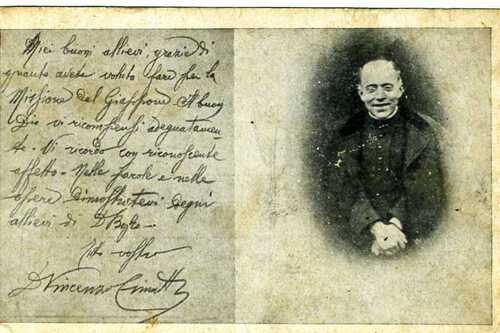 Miei buoni allievi, grazie di
quanto avete voluto fare per la
Missione del Giappone. Il buon
Dio vi ricompensi adeguatamen-
te. Vi ricordo con riconoscente
affetto - Nelle parole e nelle
opere dimostratevi degni
allievi di D. Bosco -
tutto vostro
D Vincenzo Cimatti